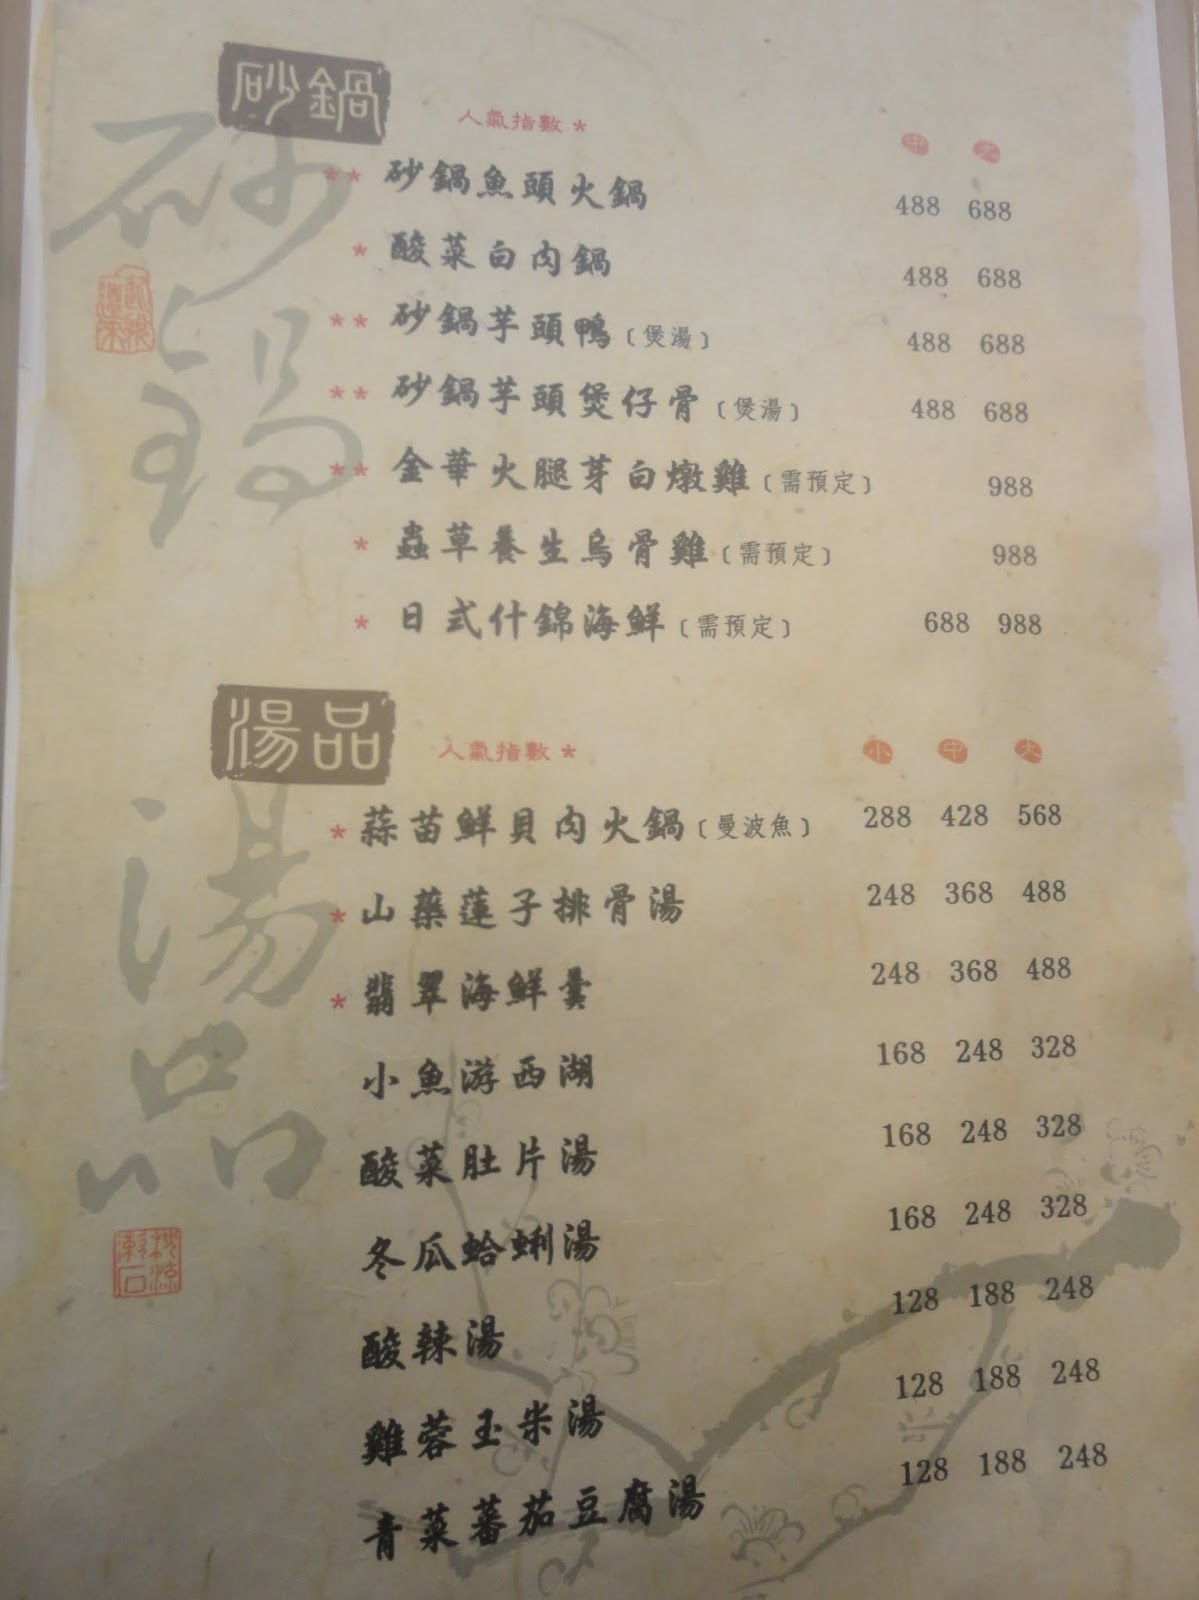 砂鍋
人氣指數 *
中 大
** 砂鍋魚頭火鍋 488 688
* 酸菜白肉鍋 488 688
** 砂鍋芋頭鴨〔煲湯〕 488 688
** 砂鍋芋頭煲仔骨〔煲湯〕 488 688
** 金華火腿芽白燉雞〔需預定〕 988
* 蟲草養生烏骨雞〔需預定〕 988
* 日式什錦海鮮〔需預定〕 688 988
砂鍋
湯品
人氣指數 *
小 中 大
* 蒜苗鮮貝肉火鍋〔曼波魚〕 288 428 568
* 山藥蓮子排骨湯 248 368 488
* 翡翠海鮮羹 248 368 488
小魚游西湖 168 248 328
酸菜肚片湯 168 248 328
冬瓜蛤蜊湯 168 248 328
酸辣湯 128 188 248
雞蓉玉米湯 128 188 248
青菜蕃茄豆腐湯 128 188 248
湯品